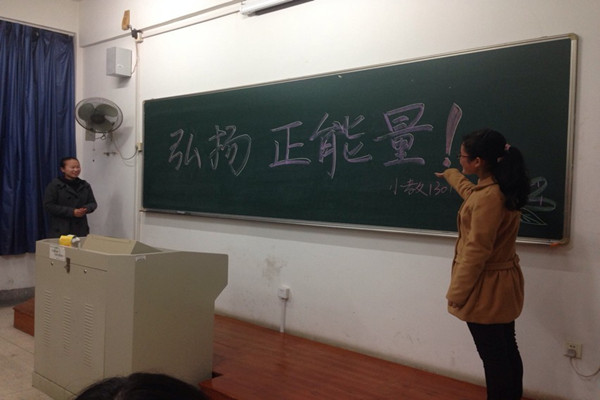 弘扬 正能量！
小教130